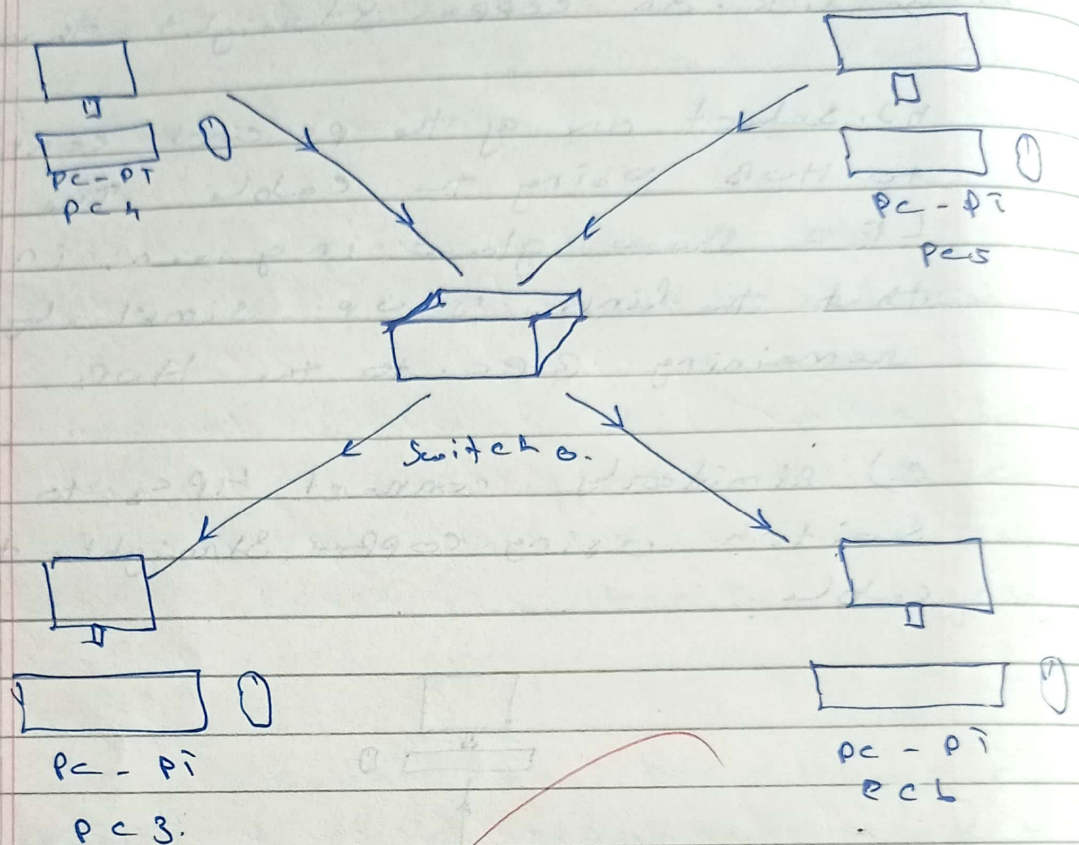 PC-PT
PC 4
PC-PT
PC5
Switch 0.
PC-PT
PC 3.
PC-PT
PC6